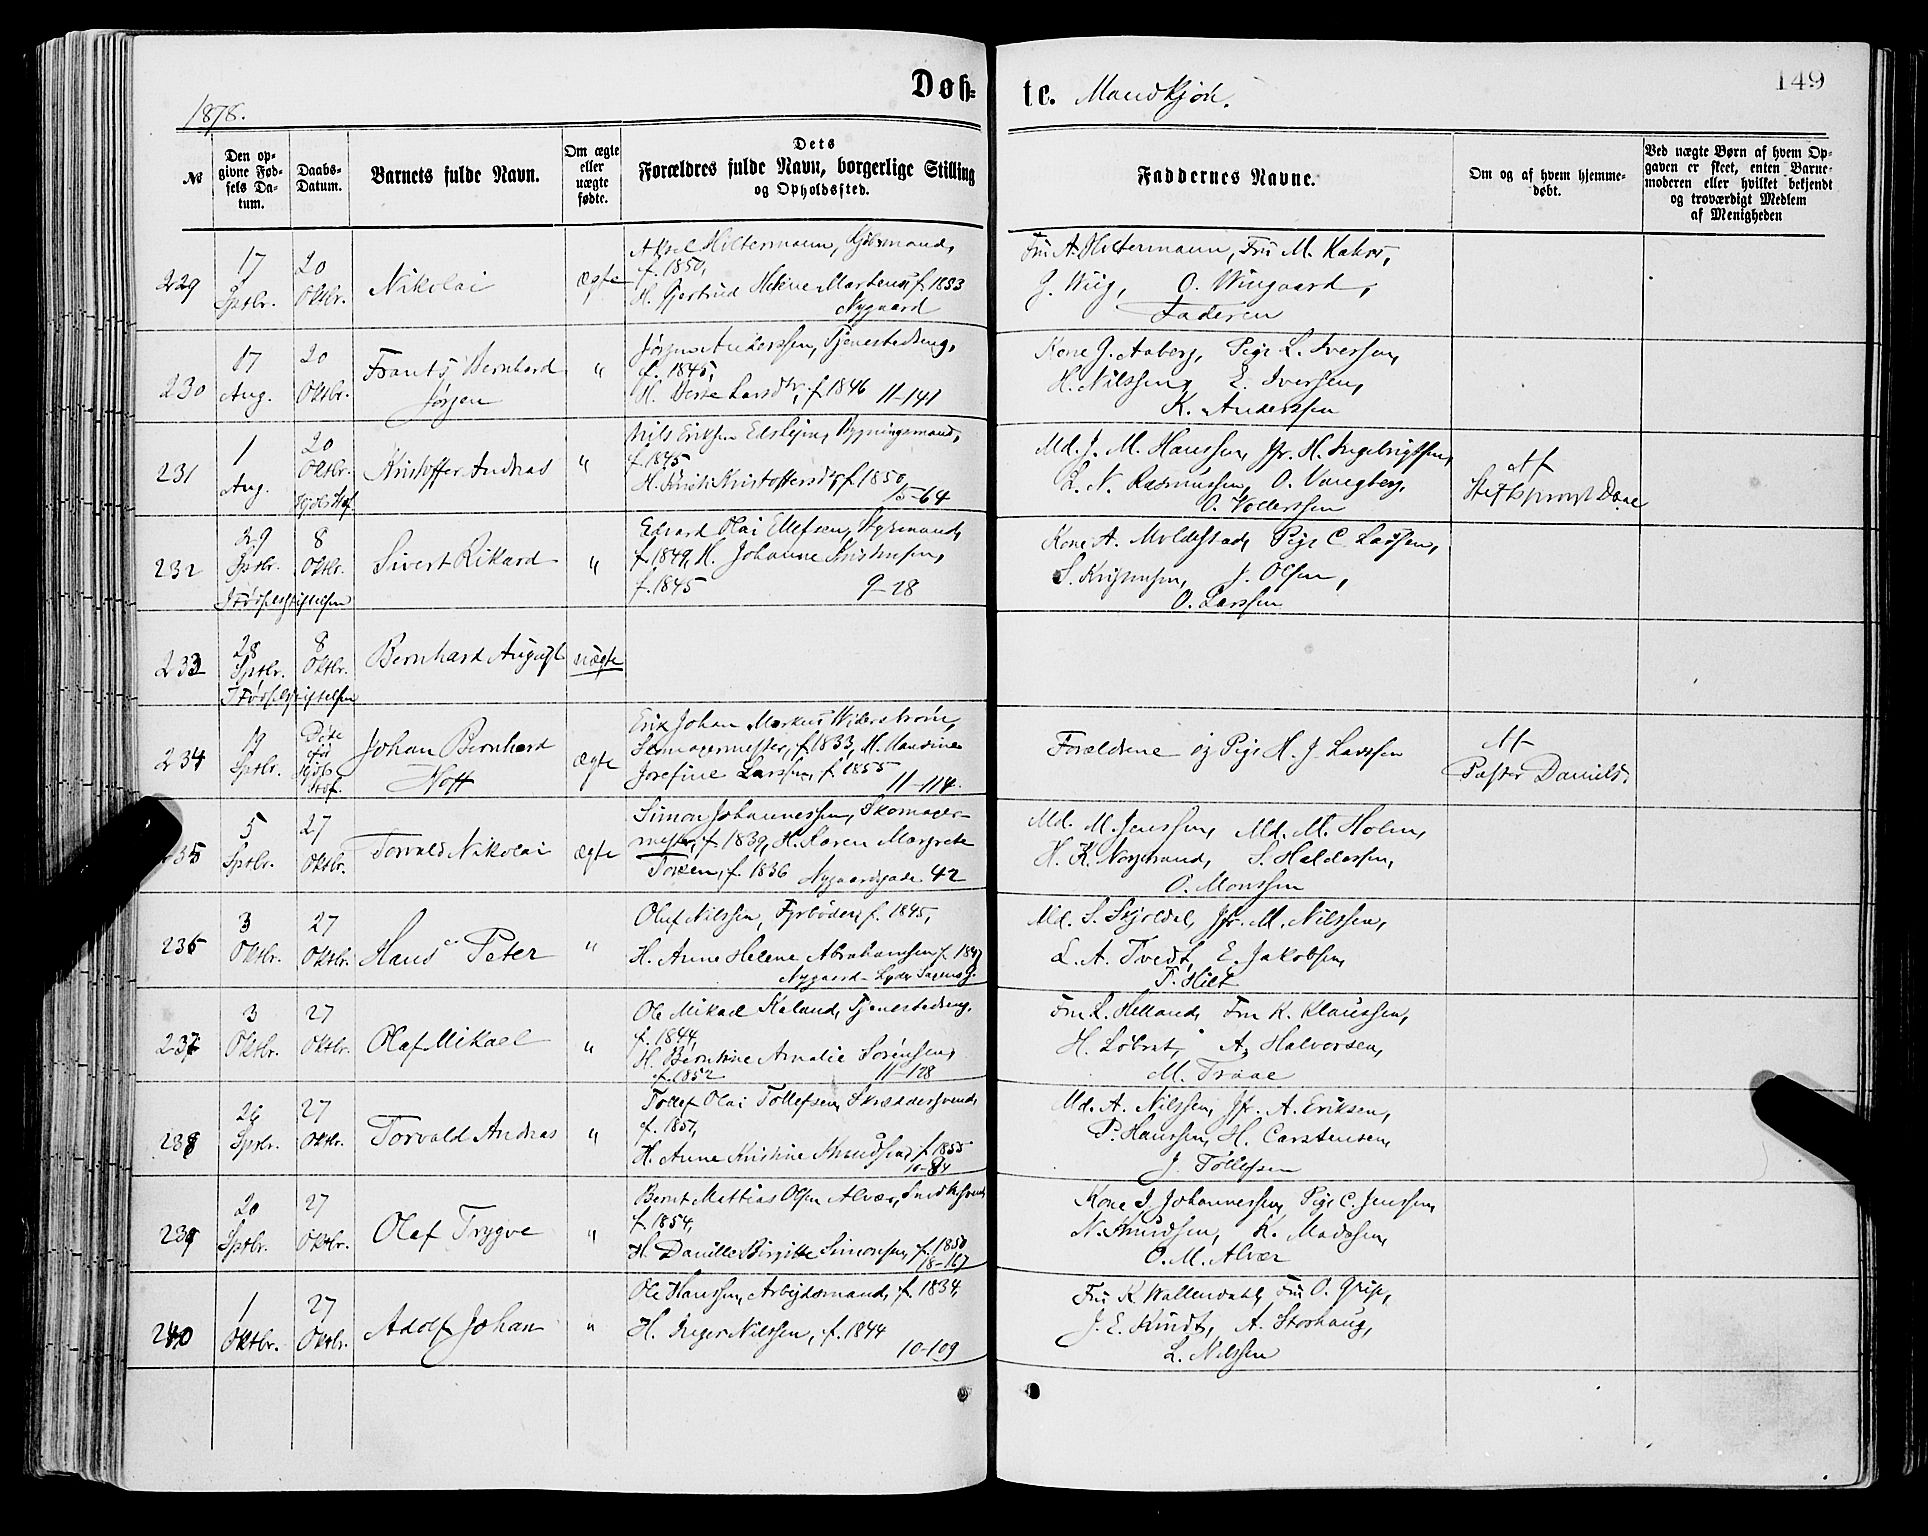 1878.
Døb-
te. Mandkjøn.
149
№
Den opgivne Fødsels Datum.
Daabs-Datum.
Barnets fulde Navn.
Om ægte eller uægte fødte.
Dets Forældres fulde Navn, borgerlige Stilling og Opholdssted.
Faddernes Navne.
Om og af hvem hjemmedøbt.
Ved uægte Børn af hvem Opgaven er skeet, enten Barnemoderen eller hvilket bekjendt og troværdigt Medlem af Menigheden
229
17 Sptbr.
20 Oktbr.
Nikolai
ægte
Hiltermann, Kjøbmand,
f. 1850,
H. Gjertrud Helene Martens, f. 1853
Nygaard
Fru A. Hiltermann, Fru M. Kahrs,
J. Wiig, O. Wingaard,
Faderen
230
17 Aug.
20 Oktbr.
Frants Bernhard
Jørgen
"
Jørgen Anderssen, Tjenestedreng,
f. 1845,
H. Larsdtr, f. 1846 11-141
Kone J. Aaberg, Pige L. Iversen,
H. Nilssen, E. Iversen,
K. Anderssen
231
1 Aug.
20 Oktbr.
Kristoffer Andreas
"
Nils Eriksen Bygningsmand,
f. 1845
H. Kristoffersdtr, f. 1850,
15-64
Md. J. M. Hanssen, Jfr. H. Ingebrigtsen,
L. N. Rasmussen, O. Vangberg,
O.
Af
Stiftsprovst Daae
232
29 Sptbr.
8 Oktbr.
I Fødselsstiftelsen
Sivert Rikard
"
Edvard Olai Ellefsen,
f. 1849, H. Johanne Kristensen,
f. 1845 9-28
Kone A. Moldestad, Pige C. Larsen,
S. Kristensen, J. Olsen,
O. Larssen
233
28 Sptbr.
8 Oktbr.
I Fødselsstiftelsen
Bernhard August
uægte
234
Sptbr.
Johan Bernhard
Noft
ægte
Erik Johan Markus Widerstrøm,
Skomagermester, f. 1833, H. Hansine
Josefine Larssen, f. 1855
11-114.
Forældrene og Pige H. J. Larssen
Af
Pastor Daniels.
235
5 Sptbr.
27 Oktbr.
Torvald Nikolai
ægte
Simon Johannessen, Skomager-
mester, f. 1839, H. Karen Margrete
f. 1836 Nygaardsgade 42
Md. M. Jenssen, Md. M. Holm,
H. K. S. Haldorsen,
O. Monssen
236
3 Oktbr.
27 Oktbr.
Hans Peter
"
Oluf Nilssen, Fyrbøder, f. 1845,
H. Anne Helene Abrahamsen, f. 1847
Nygaard-
Md. S. Skjoldal, Jfr. M. Nilssen,
L. A. Tvedt, E. Jakobsen,
T. Hilt
237
3 Oktbr.
27 Oktbr.
Olaf Mikael
"
Ole Mikael Kaland, Tjenestedreng,
f. 1844,
H. Berntine Amalie Sørensen,
f. 1852 11-128
Fru L. Helland, Fru K. Klaussen,
H. A. Halvorsen,
M. Traae
238
Sptbr.
27 Oktbr.
Torvald Andreas
"
Tollef Olai Tollefsen, Skræddersvend,
f. 1851,
H. Anne Kristine Knudsen, f. 1855
10-84
Md. A. Nilssen, Jfr. A. Eriksen,
P. Hanssen, H. Carstensen,
J. Tollefsen
239
20 Sptbr.
27 Oktbr.
Olaf Trygve
"
Bernt Mathias Olsen Alvær, Snedkersvend
f. 1854,
H. Danille Birgitte Simonsen, f. 1850
18-167
Kone I. Johannessen, Pige C. Jenssen,
N. Knudsen, K. Madssen,
O. M. Alvær
240
1 Oktbr.
27 Oktbr.
Adolf Johan
"
Ole Hanssen, Arbeidsmand, f. 1834,
H. Inger Nilssen, f. 1844
10-109
Fru K. Wallendahl, Fru O. Grip,
J. E. Kindt, A. Storhaug,
L. Nilssen